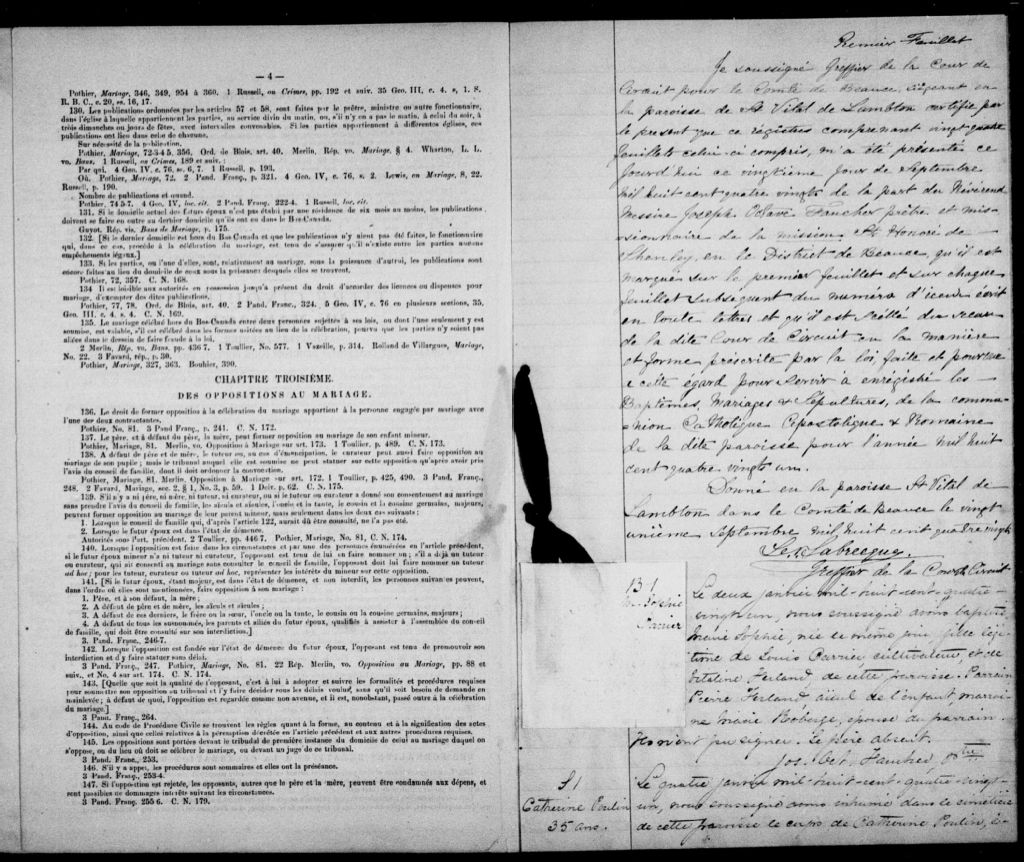 — 4 —
Pothier, Mariage, 346, 349, 954 à 360. 1 Russell, on Crimes, pp. 192 et suiv. 35 Geo. III, c. 4, s, 1. S.
R. B. C., c. 20, ss. 16, 17.
130. Les publications ordonnées par les articles 57 et 58, sont faites par le prêtre, ministre ou autre fonctionnaire,
dans l'église à laquelle appartiennent les parties, au service divin du matin, ou, s'il n'y en a pas le matin, à celui du soir, à
trois dimanches ou jours de fêtes, avec intervalles convenables. Si les parties appartiennent à différentes églises, ces
publications ont lieu dans celle de chacune.
Sur nécessité de la publication.
Pothier, Mariage, 72-3-4 5, 356, Ord. de Blois, art. 40. Merlin, Rép. vo. Mariage, § 4. Wharton, L. L.
vo. Bans. 1 Russell, on Crimes, 189 et suiv. :
Par qui, 4 Geo. IV, c. 76, ss. 6, 7. 1 Russell, p. 193.
Où, Pothier, Mariage, 72. 2 Pand. Franç., p. 321. 4 Geo. IV, c. 76, s. 2. Lewis, on Mariage, 8, 22.
Russell, p. 190.
Nombre de publications et quand.
Pothier, 74 5-7. 4 Geo, IV, loc. cit. 2 Pand. Franç. 222-4. 1 Russell, loc. cit.
131. Si le domicile actuel des futurs époux n'est pas établi par une résidence de six mois au moins, les publications
doivent se faire en outre au dernier domicile qu'ils ont eu dans le Bas-Canada.
Guyot, Rép. vis. Bans de Mariage, p. 175.
132. [Si le dernier domicile est hors du Bas-Canada et que les publications n'y aient pas été faites, le fonctionnaire
qui, dans ce cas, procède à la célébration du mariage, est tenu de s'assurer qu'il n'existe entre les parties aucuns
empêchements légaux.]
133. Si les parties, ou l'une d'elles, sont, relativement au mariage, sous la puissance d'autrui, les publications sont
encore faites au lieu du domicile de ceux sous la puissance desquels elles se trouvent.
Pothier, 72, 357. C. N. 168.
134 Il est loisible aux autorités en possession jusqu'à présent du droit d'accorder des licences ou dispenses pour
mariage, d'exempter des dites publications.
Pothier, 77, 78. Ord. de Blois, art. 40. 2 Pand. Franç., 324. 5 Geo, IV, c. 76 en plusieurs sections, 35,
Geo. III, c. 4, s. 4. C. N. 169.
135. Le mariage célébré hors du Bas-Canada entre deux personnes sujettes à ses lois, ou dont l'une seulement y est
soumise, est valable, s'il est célébré dans les formes usitées au lieu de la célébration, pourvu que les parties n'y soient pas
allées dans le dessein de faire fraude à la loi.
2 Merlin, Rép. vo. Bans, pp. 436 7. 1 Toullier, No. 577. 1 Vazeille, p. 314. Rolland de Villargues, Mariage,
No. 22. 3 Favard, rép., p. 30.
Pothier, Mariage, 327, 363. Bouhier, 390.
CHAPITRE TROISIÈME.
DES OPPOSITIONS AU MARIAGE.
136. Le droit de former opposition à la célébration du mariage appartient à la personne engagée par mariage avec
l'une des deux contractantes.
Pothier, No. 81. 3 Pand Franç., p. 241. C. N. 172.
137. Le père, et à défaut du père, la mère, peut former opposition au mariage de son enfant mineur.
Pothier, Mariage, 81. Merlin, vo. Opposition à Mariage sur art. 173. 1 Toullier, p. 489. C. N. 173.
138. A défaut de père et de mère, le tuteur ou, au cas d'émancipation, le curateur peut aussi faire opposition au
mariage de son pupile ; mais le tribunal auquel elle est soumise ne peut statuer sur cette opposition qu'après avoir pris
l'avis du conseil de famille, dont il doit ordonner la convocation.
Pothier, Mariage, 81. Merlin, Opposition à Mariage sur art. 172. 1 Toullier, p. 425, 490. 3 Pand. Franç.,
248. 2 Favard, Mariage, sec. 2, § 1, No. 3, p. 59. 1 Delv. p. 62. C. N. 175.
139. S'il n'y a ni père, ni mère, ni tuteur, ni curateur, ou si le tuteur ou curateur a donné son consentement au mariage
sans prendre l'avis du conseil de famille, les aïeuls et aïeules, l'oncle et la tante, le cousin et la cousine germains, majeurs,
peuvent former opposition au mariage de leur parent mineur, mais seulement dans les deux cas suivants :
1. Lorsque le conseil de famille qui, d'après l'article 122, aurait dû être consulté, ne l'a pas été.
2. Lorsque le futur époux est dans l'état de démence.
Autorités sous l'art. précédent. 2 Toullier, pp. 446 7. Pothier, Mariage, No. 81, C. N. 174.
140. Lorsque l'opposition est faite dans les circonstances et par une des personnes énumérées en l'article précédent,
si le futur époux mineur n'a ni tuteur ni curateur, l'opposant est tenu de lui en faire nommer un ; s'il a déjà un tuteur
ou curateur, qui ait consenti au mariage sans consulter le conseil de famille, l'opposant doit lui faire nommer un tuteur
ad hoc ; pour les tuteur, curateur ou tuteur ad hoc, représenter les intérêts du mineur sur cette opposition.
141. [Si le futur époux, étant majeur, est dans l'état de démence, et non interdit, les personnes suivantes peuvent,
dans l'ordre où elles sont mentionnées, faire opposition à son mariage :
1. Père, et à son défaut, la mère ;
2. A défaut de père et de mère, les aïeuls et aïeules ;
3. A défaut de ces derniers, le frère ou la sœur, l'oncle ou la tante, le cousin ou la cousine germains, majeurs ;
4. A défaut de tous les susnommés, les parents et alliés du futur époux, qualifiés à assister à l'assemblée du conseil
de famille, qui doit être consulté sur son interdiction.]
3. Pand. Franç., 246-7.
142. Lorsque l'opposition est fondée sur l'état de démence du futur époux, l'opposant est tenu de promouvoir son
interdiction et d'y faire statuer sans délai.
3 Pand. Franç., 247. Pothier, Mariage, No. 81. 22 Rép. Merlin, vo. Opposition au Mariage, pp. 88 et
suiv., et No. 4 sur art. 174. C. N. 174.
143. [Quelle que soit la qualité de l'opposant, c'est à lui à adopter et suivre les formalités et procédures requises
pour soumettre son opposition au tribunal et l'y faire décider sous les délais voulus, sans qu'il soit besoin de demande en
mainlevée ; à défaut de quoi, l'opposition est regardée comme non avenue, et il est, nonobstant, passé outre à la célébration
du mariage.]
3 Pand. Franç., 264.
144. Au code de Procédure Civile se trouvent les règles quant à la forme, au contenu et à la signification des actes
d'opposition, ainsi que celles relatives à la péremption décrétée en l'article précédent et aux autres procédures requises.
145. Les oppositions sont portées devant le tribudal de première instance du domicile de celui au mariage duquel on
s'oppose, ou du lieu où doit se célébrer le mariage, ou devant un juge de ce tribunal.
3 Pand. Franç., 253.
146. S'il y a appel, les procédures sont sommaires et elles ont la préséance.
3 Pand. Franç., 253-4.
147. Si l'opposition est rejetée, les opposants, autres que le père et la mère, peuvent être condamnés aux dépens, et
sont passibles de dommages intérêts suivant les circonstances.
3 Pand. Franç. 255 6. C. N. 179.
Premier Feuillet
Je soussigné Greffier de la Cour de
Circuit pour le Comté de Beauce, siégeant en
la paroisse de St Vital de Lambton certifie par
le present que ce régistre comprenant vingt quatre
feuillets celui-ci compris, m'a été présenté ce
jourd'hui ce vingtième jour de Septembre
mil huit cent quatre vingts de la part du Révérend
Messire Joseph Octave Faucher prêtre et mis-
sionnaire de la mission St Honoré de
Shenley, en le District de Beauce, qu'il est
marqué sur le premier feuillet et sur chaque
feuillet subséquent du numéro d'iceux écrit
en toute lettres et qu'il est Scellé du sceau
de la dite Cour de Circuit en la manière
et forme préscrite par la loi, faite et pourvue
a cette égard pour servir à enrégistré les
Baptêmes, Mariages & Sepultures, de la commu-
-nion Catholique Apostolique & Romaine
de la dite paroisse pour l'année mil huit
cent quatre vingt un.
Donné en la paroisse St Vital de
Lambton dans le Comté de Beauce le vingt
unieme Septembre mil huit cent quatre vingts
Labrecque
Greffier de la Cour de Circuit
B 1
Sophie
Carrier
Le deux janvier mil-huit-cent-quatre-
vingt-un, nous soussigné avons baptisé
Marie Sophie, née le même jour, fille légi-
time de Louis Carrier cultivateur, et de
Ferland, de cette paroisse. Parrain
Pierre Ferland aïeul de l'enfant, marrai-
ne Marie Roberge, épouse du parrain.
N'ont pu signer. Le père absent.
Jos. Oct. Faucher Ptre
S 1
Catherine Poulin
35 ans.
Le quatre janvier mil-huit-cent-quatre-vingt-
un, nous soussigné avons inhumé dans le cimetière
de cette paroisse le corps de Catherine Poulin, é-